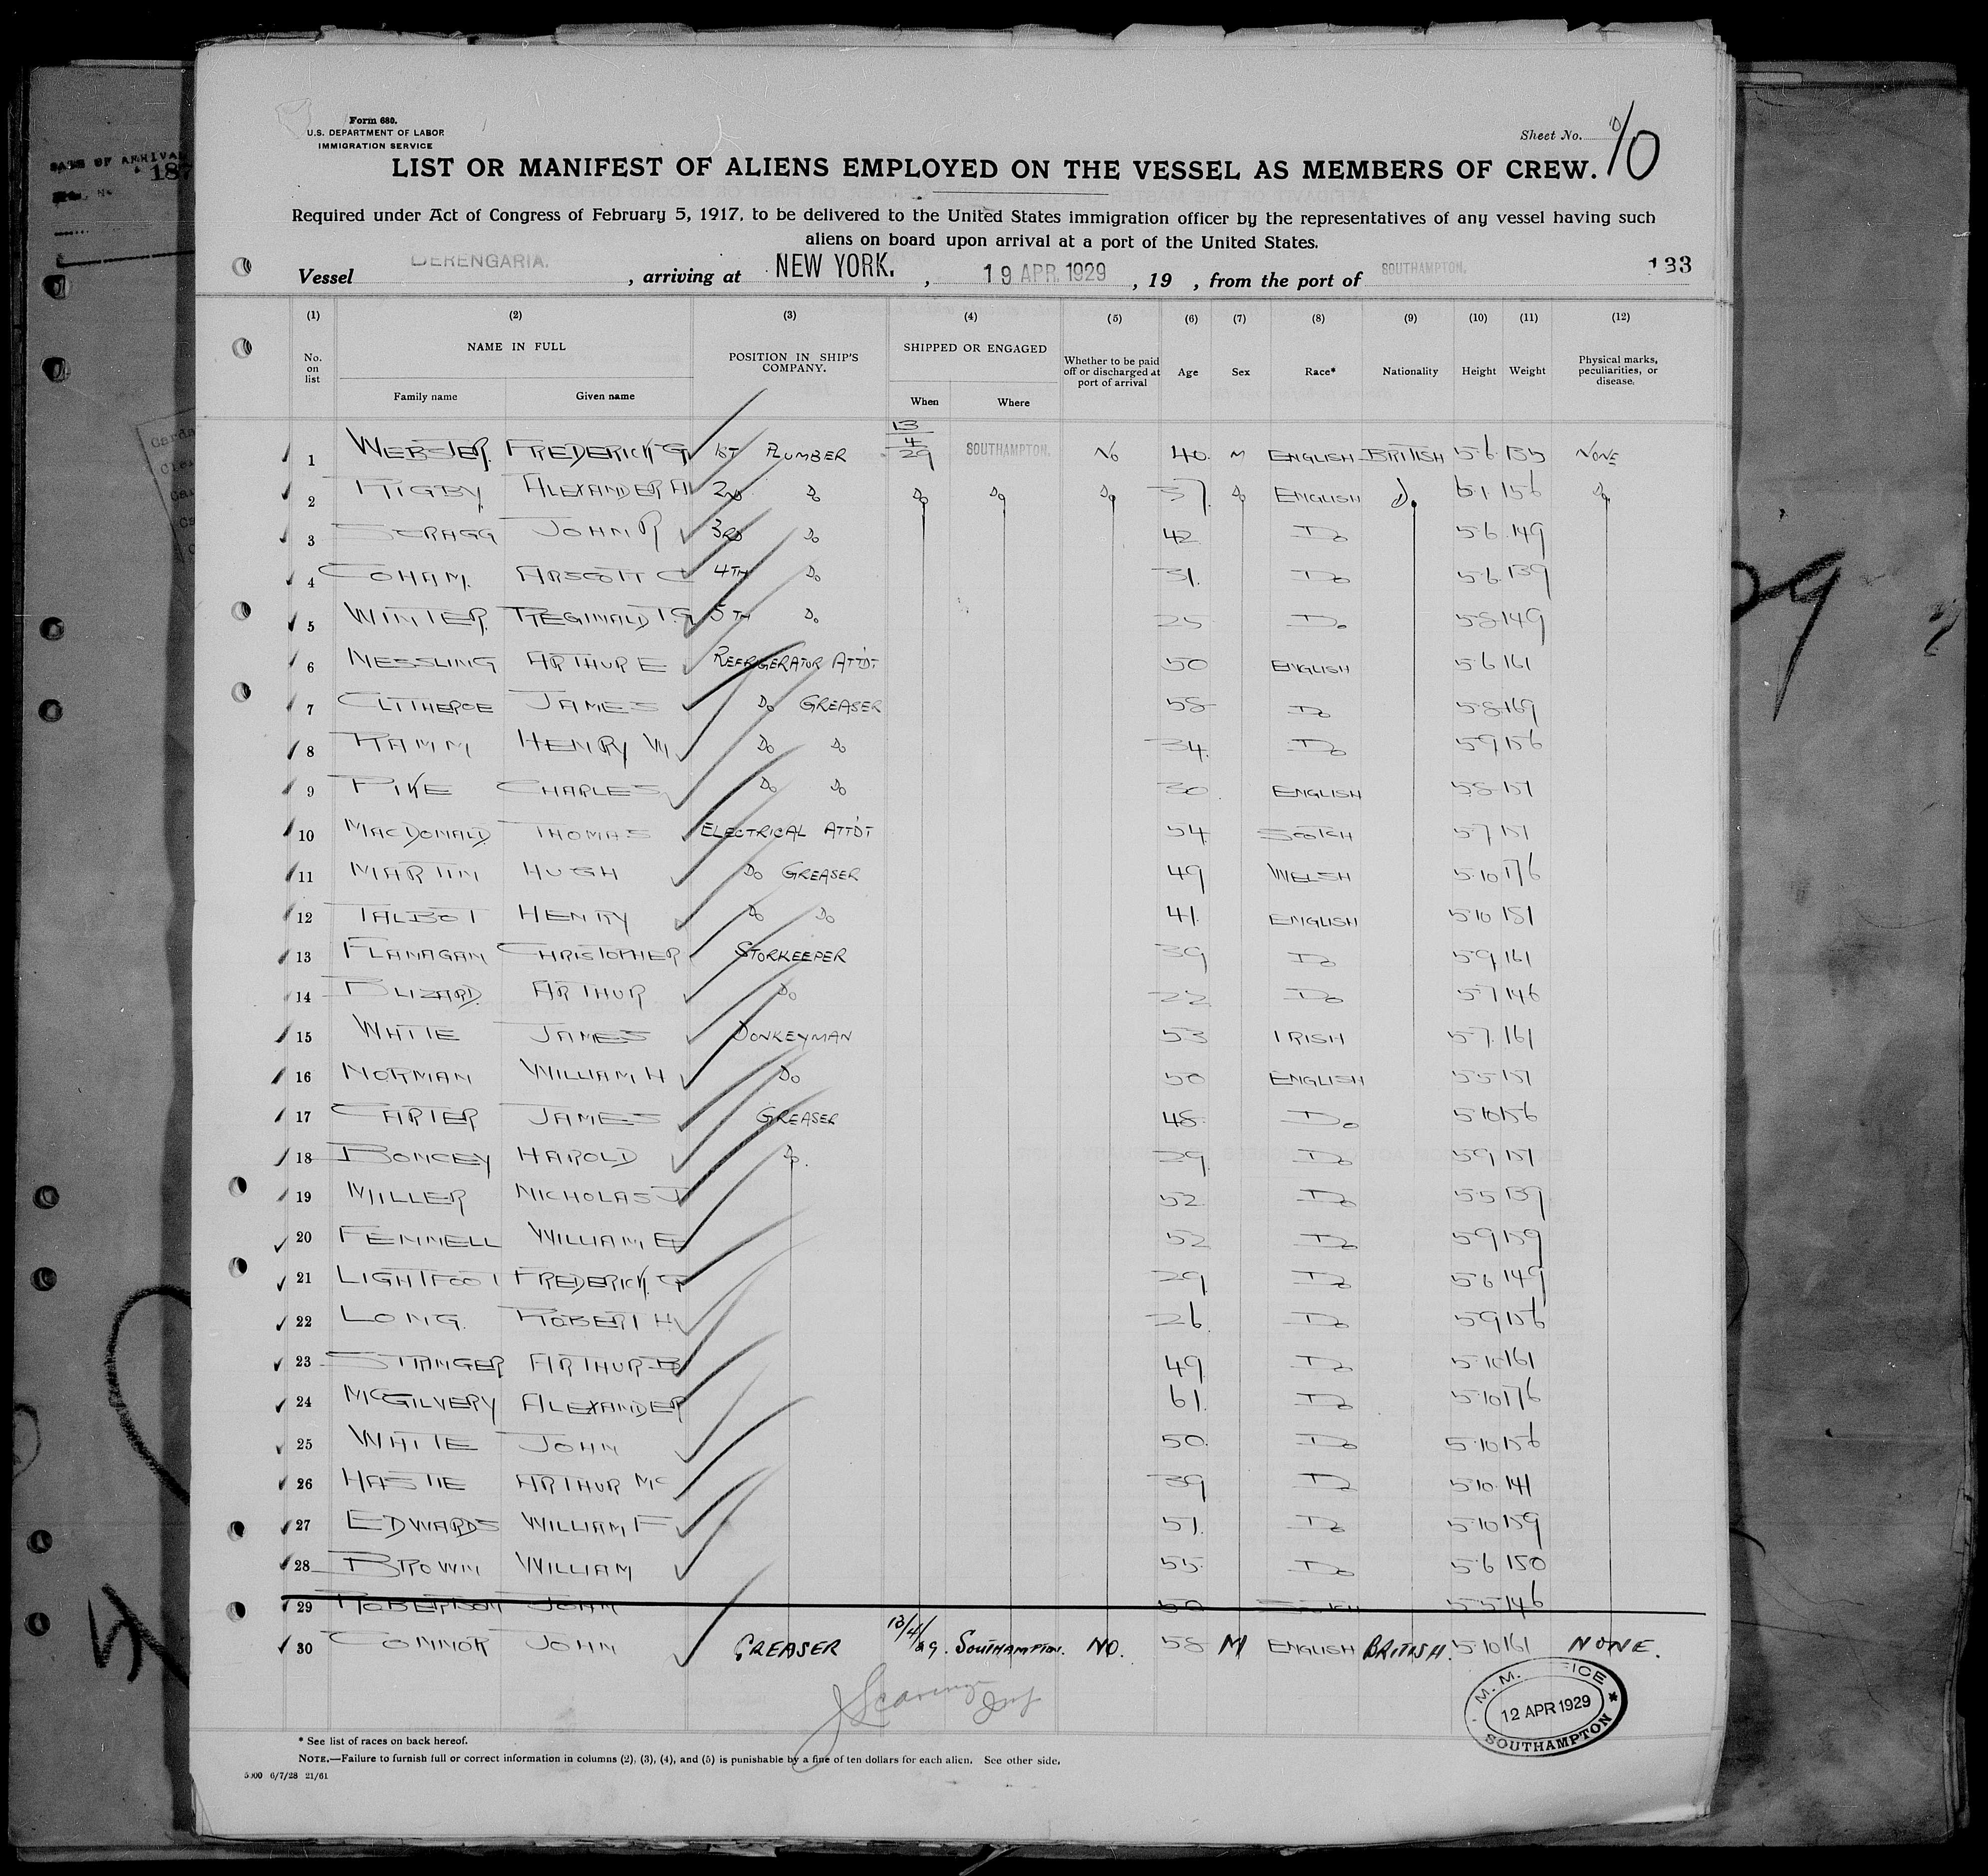 Form 680.
U.S. DEPARTMENT OF LABOR
IMMIGRATION SERVICE
Sheet No. 10
LIST OR MANIFEST OF ALIENS EMPLOYED ON THE VESSEL AS MEMBERS OF CREW.
Required under Act of Congress of February 5, 1917, to be delivered to the United States immigration officer by the representatives of any vessel having such
aliens on board upon arrival at a port of the United States.
Vessel BERENGARIA. , arriving at NEW YORK. , 19 APR. 1929 , 19 , from the port of SOUTHAMPTON. 133
(1) (2) (3) (4) (5) (6) (7) (8) (9) (10) (11) (12)
No. on list NAME IN FULL POSITION IN SHIP'S COMPANY. SHIPPED OR ENGAGED Whether to be paid off or discharged at port of arrival Age Sex Race* Nationality Height Weight Physical marks, peculiarities, or disease.
Family name Given name When Where
1 WEBSTER. FREDERICK G 1ST PLUMBER 13/4/29 SOUTHAMPTON. No 40. M ENGLISH BRITISH 5-6 135 NONE
2 RIGBY ALEXANDER H 2ND Do Do Do Do 37 Do ENGLISH do 6-1 156 Do
3 SCRAGG JOHN R 3RD Do 42 Do 5-6 149
4 COHAM. ARSCOTT C 4TH Do 31. Do 5-6 139
5 WINTER. REGINALD T.G 5TH Do 25 Do 5-8 149
6 NESSLING ARTHUR E REFRIGERATOR ATTDT 50 ENGLISH 5-6 161
7 CLITHEROE JAMES Do GREASER 58 Do 5-8 169
8 HAMM HENRY W Do Do 34. Do 5-9 156
9 PIKE CHARLES Do Do 30 ENGLISH 5-8 151
10 MACDONALD THOMAS ELECTRICAL ATTDT 54 SCOTCH 5-7 151
11 MARTIN HUGH Do GREASER 49 WELSH 5-10 176
12 TALBOT HENRY Do Do 41. ENGLISH 5-10 151
13 FLANAGAN CHRISTOPHER STORKEEPER 39 Do 5-9 161
14 BLIZARD. ARTHUR Do 22 Do 5-7 146
15 WHITE JAMES DONKEYMAN 53 IRISH 5-7 161
16 NORMAN WILLIAM H Do 50 ENGLISH 5-5 151
17 CARTER JAMES GREASER 48 Do 5-10 156
18 BONCEY HAROLD Do. 29 Do 5-9 151
19 MILLER NICHOLAS J 52 Do 5-5 139
20 FENNELL WILLIAM E 52 Do 5-9 159
21 LIGHTFOOT FREDERICK. G 29 Do 5-6 149
22 LONG. ROBERT H. 26. Do 5-9 156
23 STANGER ARTHUR B 49 Do 5-10 161
24 MCGILVERY ALEXANDER 61. Do 5-10 176
25 WHITE JOHN 50. Do 5-10 156
26 HASTIE ARTHUR MC 39 Do 5-10 141
27 EDWARDS WILLIAM F 51. Do 5-10 159
28 BROWN WILLIAM 55 Do 5-6 150
29 ROBERTSON JOHN 50 5-5 146
30 CONNOR JOHN GREASER 13/4/29. SOUTHAMPTON. NO. 58 M ENGLISH BRITISH. 5-10 161 NONE.
12 APR 1929
SOUTHAMPTON
* See list of races on back hereof.
NOTE.—Failure to furnish full or correct information in columns (2), (3), (4), and (5) is punishable by a fine of ten dollars for each alien. See other side.
5000 6/7/28 21/61